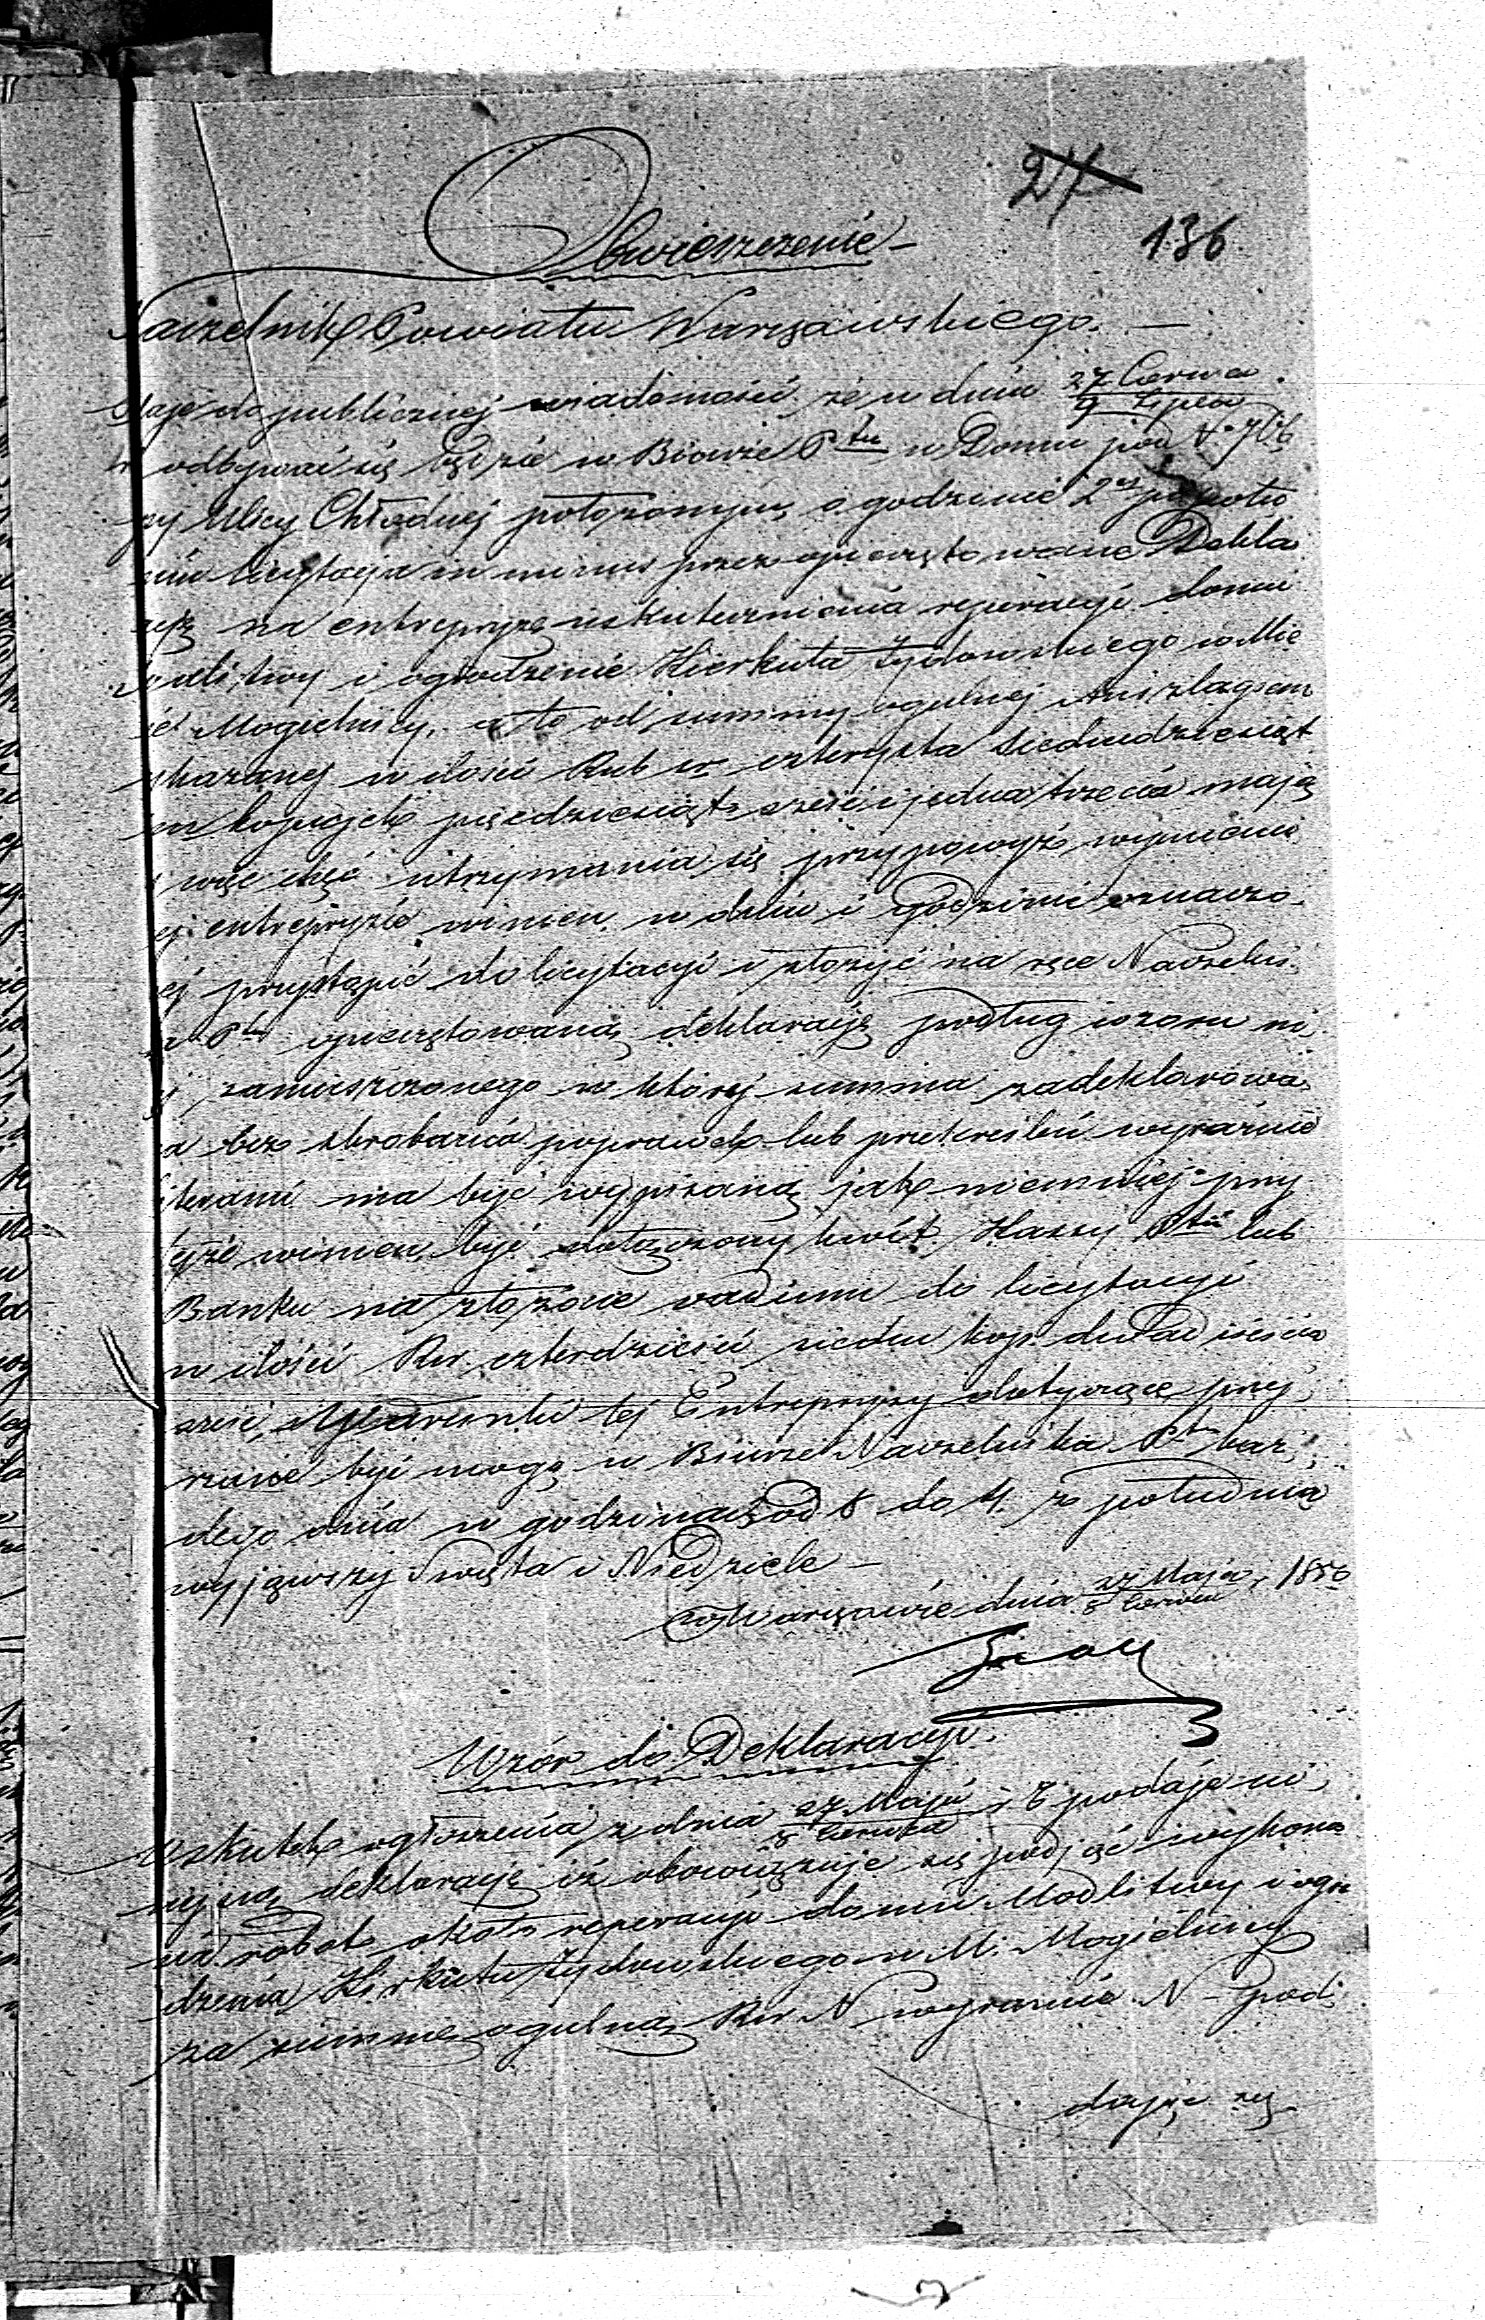 27
136
Obwieszczenie
Naczelnik Powiatu Warszawskiego.
Podaje do publicznej wiadomości, że w dniu 27 Czerwca / 9 Lipca
r odbywać się będzie w Biurze Ptu w Domu pod N°
przy Ulicy Chłodnej położonym, o godzinie 2ej z połu
niu licytacja in minus przez opieczętowane Dekla
racje na entrepryzę uskutecznienia reperacyi domu
Modlitwy i ogrodzenie Kierkuta Żydowskiego w Mie
ście Mogielnicy, a to od summy ogulnej Anszlagiem
wykazanej w ilości Rub sr. czterysta siedmdziesiąt
kopiejek piędziesiąt sześć i jedna trzecia mają
cy więc chęć utrzymania się przy powyż wymienio
nej entrepryzie winien w dniu i godzinie oznaczo
nej przystąpić do licytacyi i złożyć na ręce Naczelni
ka Ptu opieczętowaną deklaracyę podług wzoru ni
żej zamieszczonego w której summa zadeklarowa
na bez skrobania poprawek lub przekreśleń wyraźnie
literami ma być wypisaną, jak niemniej przy
tejże winien być dołączony kwit Kassy Ptu lub
Banku na złożone vadium do licytacyi
w ilości Rsr. czterdzieści siedm kop. dwadzieścia
sześć, Warunki tej Entrepryzy dotyczące przej
rzane być mogą w Biurze Naczelnika Ptu każ
dego dnia w godzinach od 8 do 4 z południa
wyjąwszy Święta i Niedziele —
w Warszawie dnia 27 Maja / 8 Czerwca 1856
Wzór do Deklaracyi.
Wskutek ogłoszenia z dnia 27 Maja / 8 Czerwca r b podaję ni
niejszą deklaracyę iż obowiązuję się podjąć wykona
nia robót około reperacyi domu Modlitwy i ogro
dzenia Kirkutu Żydowskiego w M. Mogielnicy
za summę ogulną Rsr. N wyraźnie N — pod
dając się